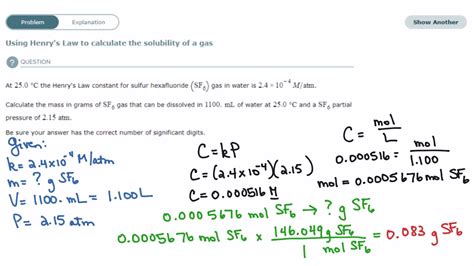 Problem
Explanation
Show Another
Using Henry's Law to calculate the solubility of a gas
? QUESTION
At 25.0 °C the Henry's Law constant for sulfur hexafluoride (SF₆) gas in water is 2.4 × 10⁻⁴ M/atm.
Calculate the mass in grams of SF₆ gas that can be dissolved in 1100. mL of water at 25.0 °C and a SF₆ partial
pressure of 2.15 atm.
Be sure your answer has the correct number of significant digits.
Given:
k = 2.4×10⁻⁴ M/atm
m = ? g SF₆
V = 1100. mL = 1.100L
P = 2.15 atm
C = kP
C = (2.4×10⁻⁴)(2.15)
C = 0.000516 M
C = mol/L
0.000516 = mol/1.100
mol = 0.0005676 mol SF₆
0.0005676 mol SF₆ → ? g SF₆
0.0005676 mol SF₆ × 146.049 g SF₆/1 mol SF₆ = 0.083 g SF₆